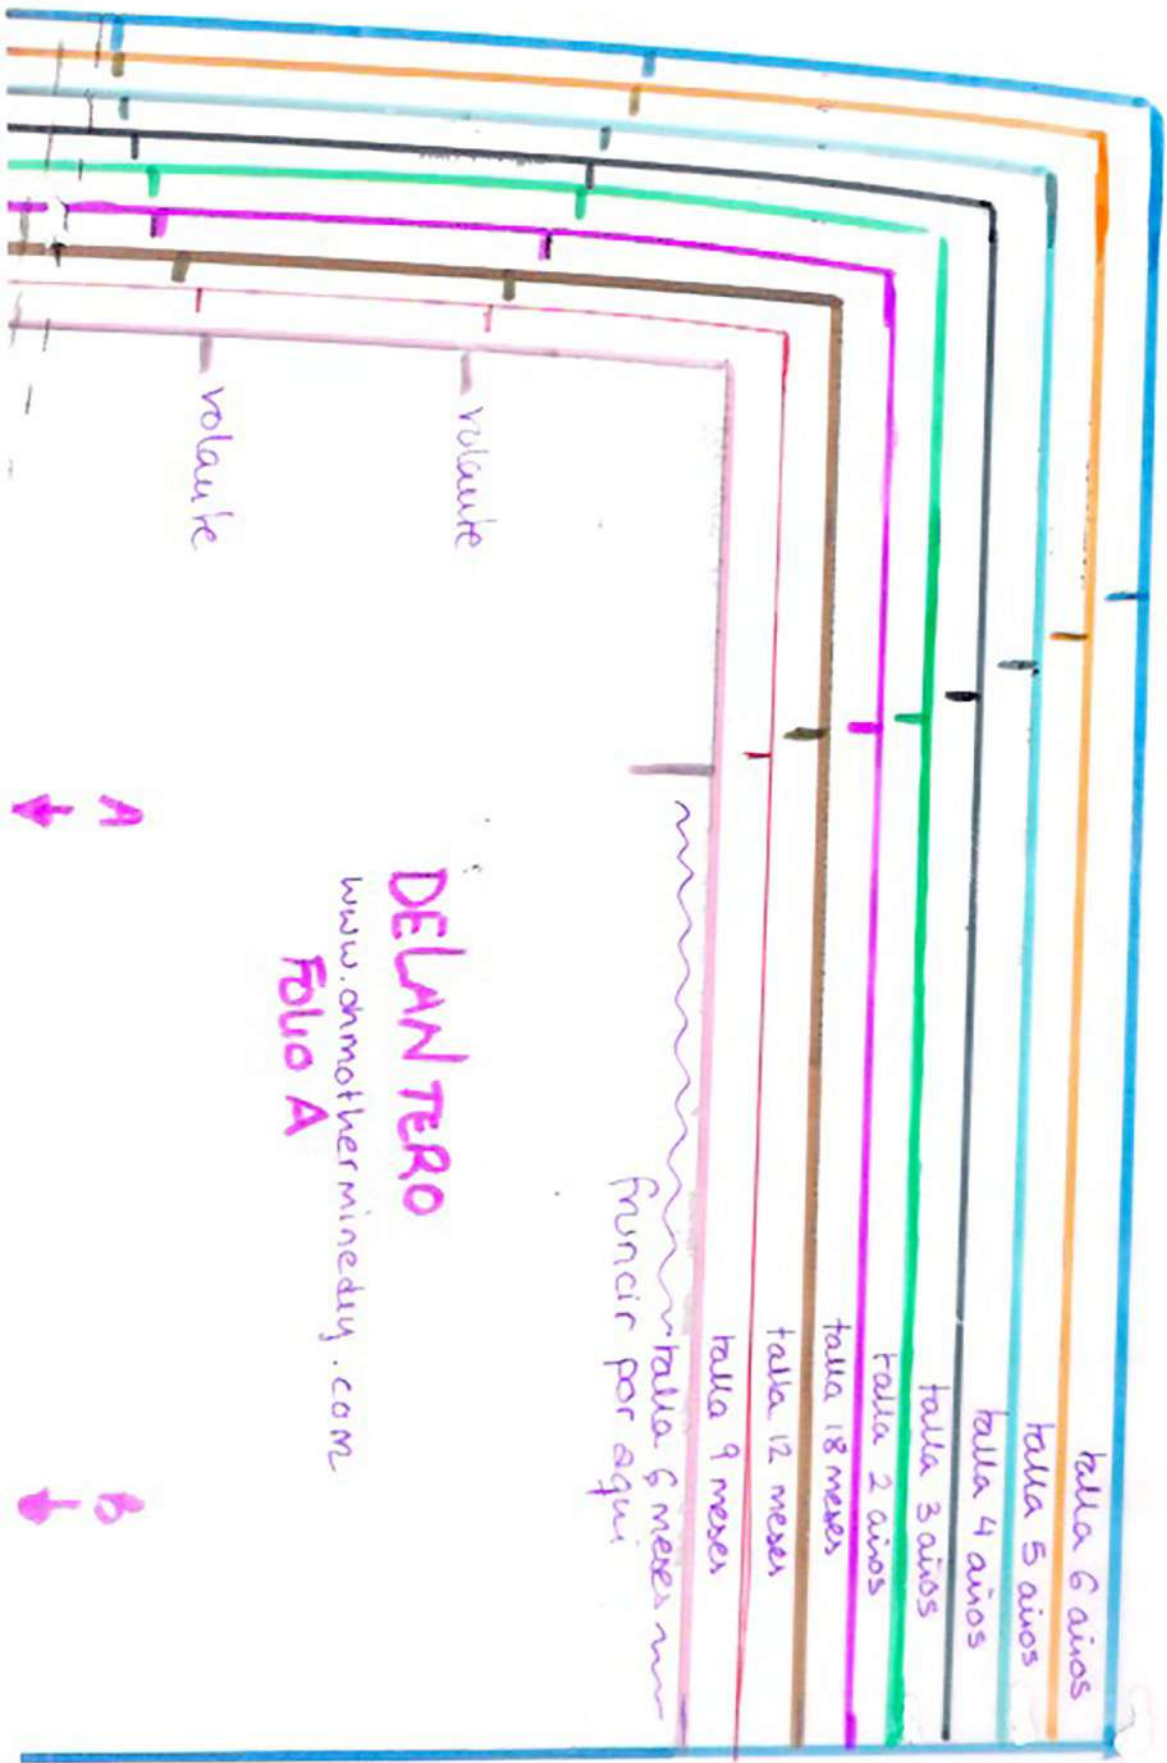 talla 6 años
talla 5 años
talla 4 años
talla 3 años
talla 2 años
talla 18 meses
talla 12 meses
talla 9 meses
talla 6 meses
fruncir por aqui
volante
volante
DELANTERO
www.ohmotherminediy.com
FOLIO A
A
B